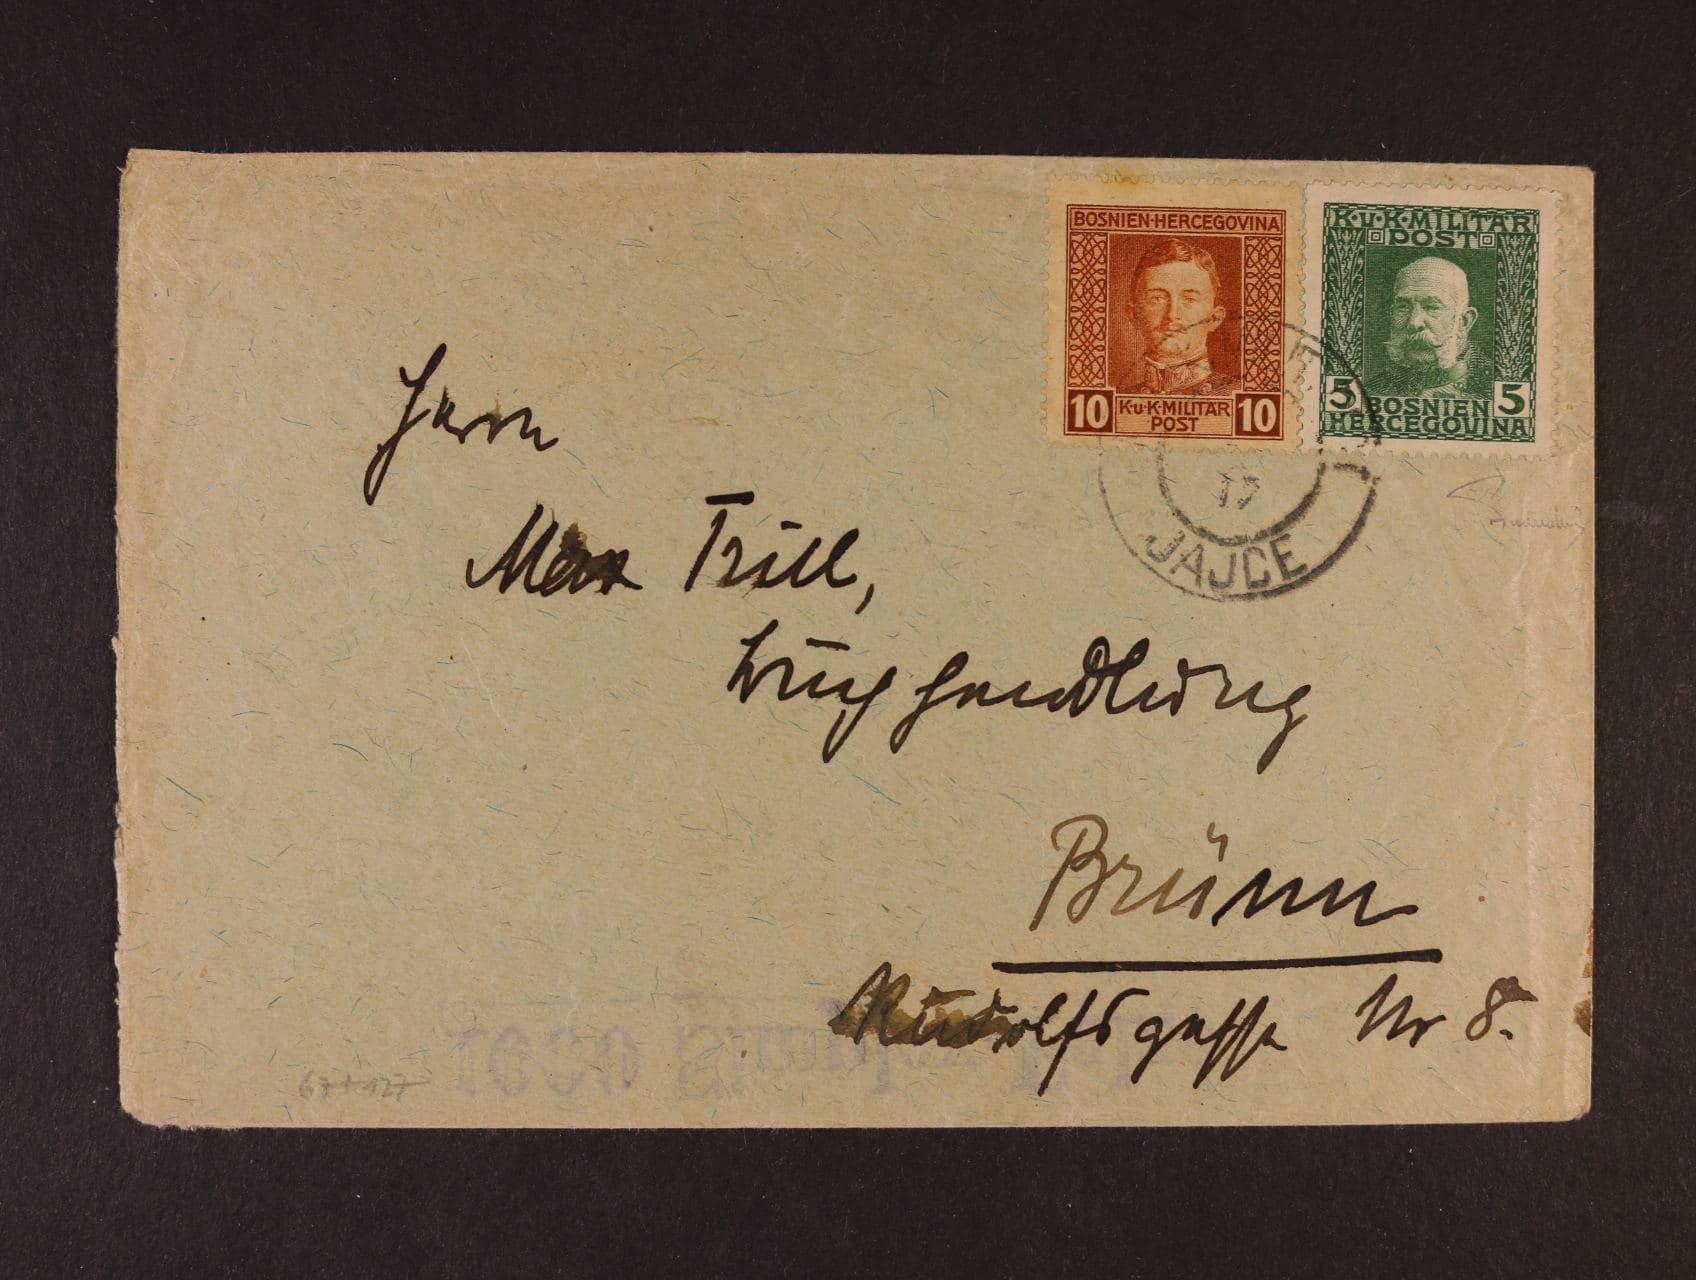 BOSNIEN·HERCEGOVINA
10 K·u·K·MILITÄR 10
POST
K·u·K·MILITÄR
POST
5 BOSNIEN 5
HERCEGOVINA
17
JAJCE
Herrn
Max Trill,
Buchhandlung
Brünn
Rudolfsgasse Nr 8.
67+127